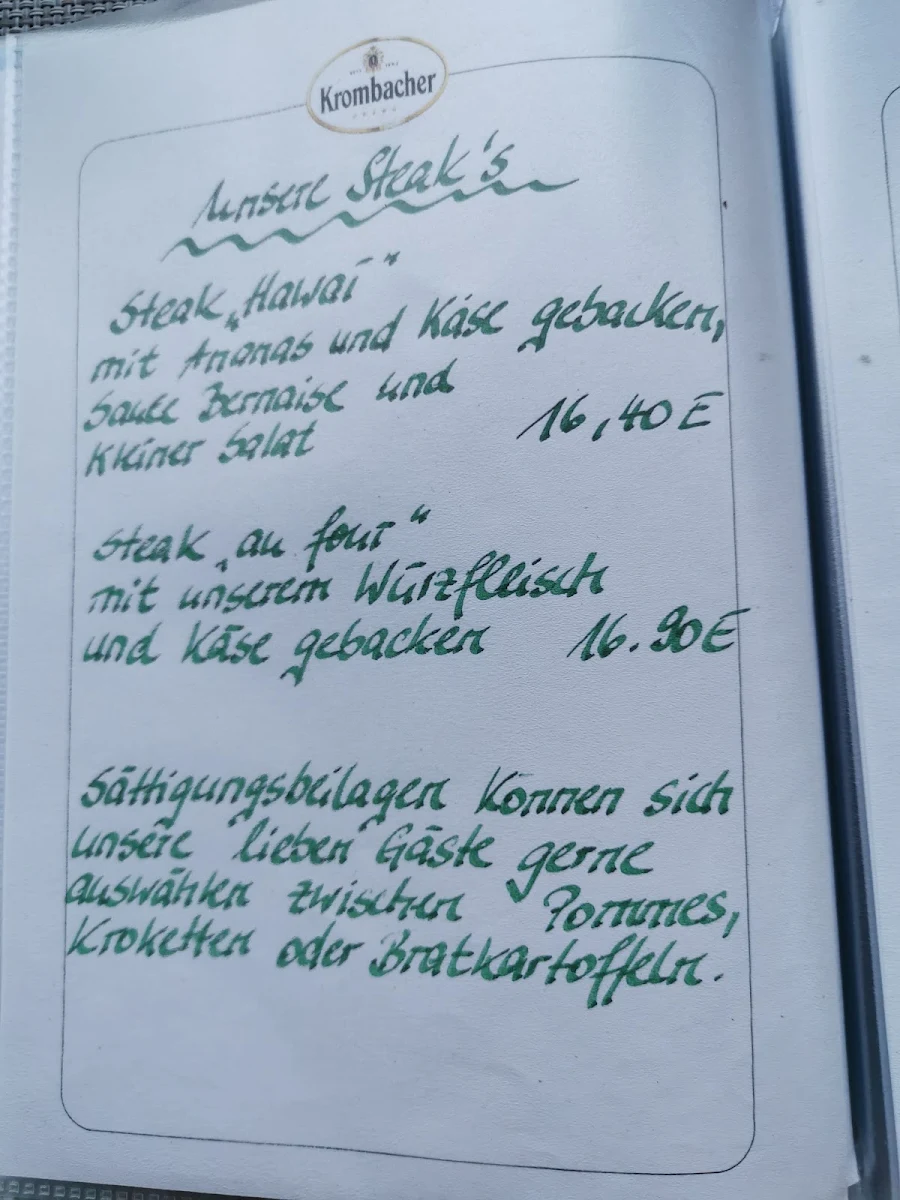 Krombacher
Unsere Steak's
Steak „Hawai"
mit Ananas und Käse gebacken,
Sauce Bernaise und
kleiner Salat 16,40 E
Steak „au four"
mit unserem Würzfleisch
und Käse gebacken 16.90 E
Sättigungsbeilagen können sich
unsere lieben Gäste gerne
auswählen zwischen Pommes,
Kroketten oder Bratkartoffeln.